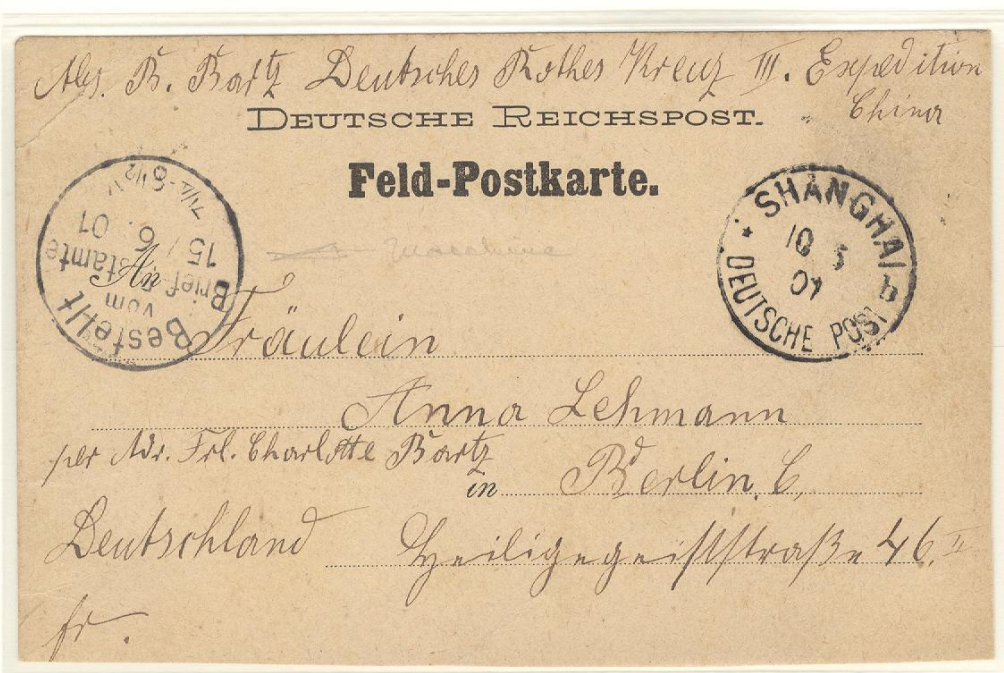 Abs. B. Bartz Deutsches Rothes Kreuz III. Expedition
China
DEUTSCHE REICHSPOST.
Feld-Postkarte.
SHANGHAI
10 5
01
DEUTSCHE POST
b
Bestellt
vom
Brief-Postamte
15 / 6. 01
7 1/4 - 8 1/2 V
An Fräulein
Anna Lehmann
per Adr. Frl. Charlotte Bartz
in Berlin. C.
Deutschland Heiligegeiststraße 46. II
fr.